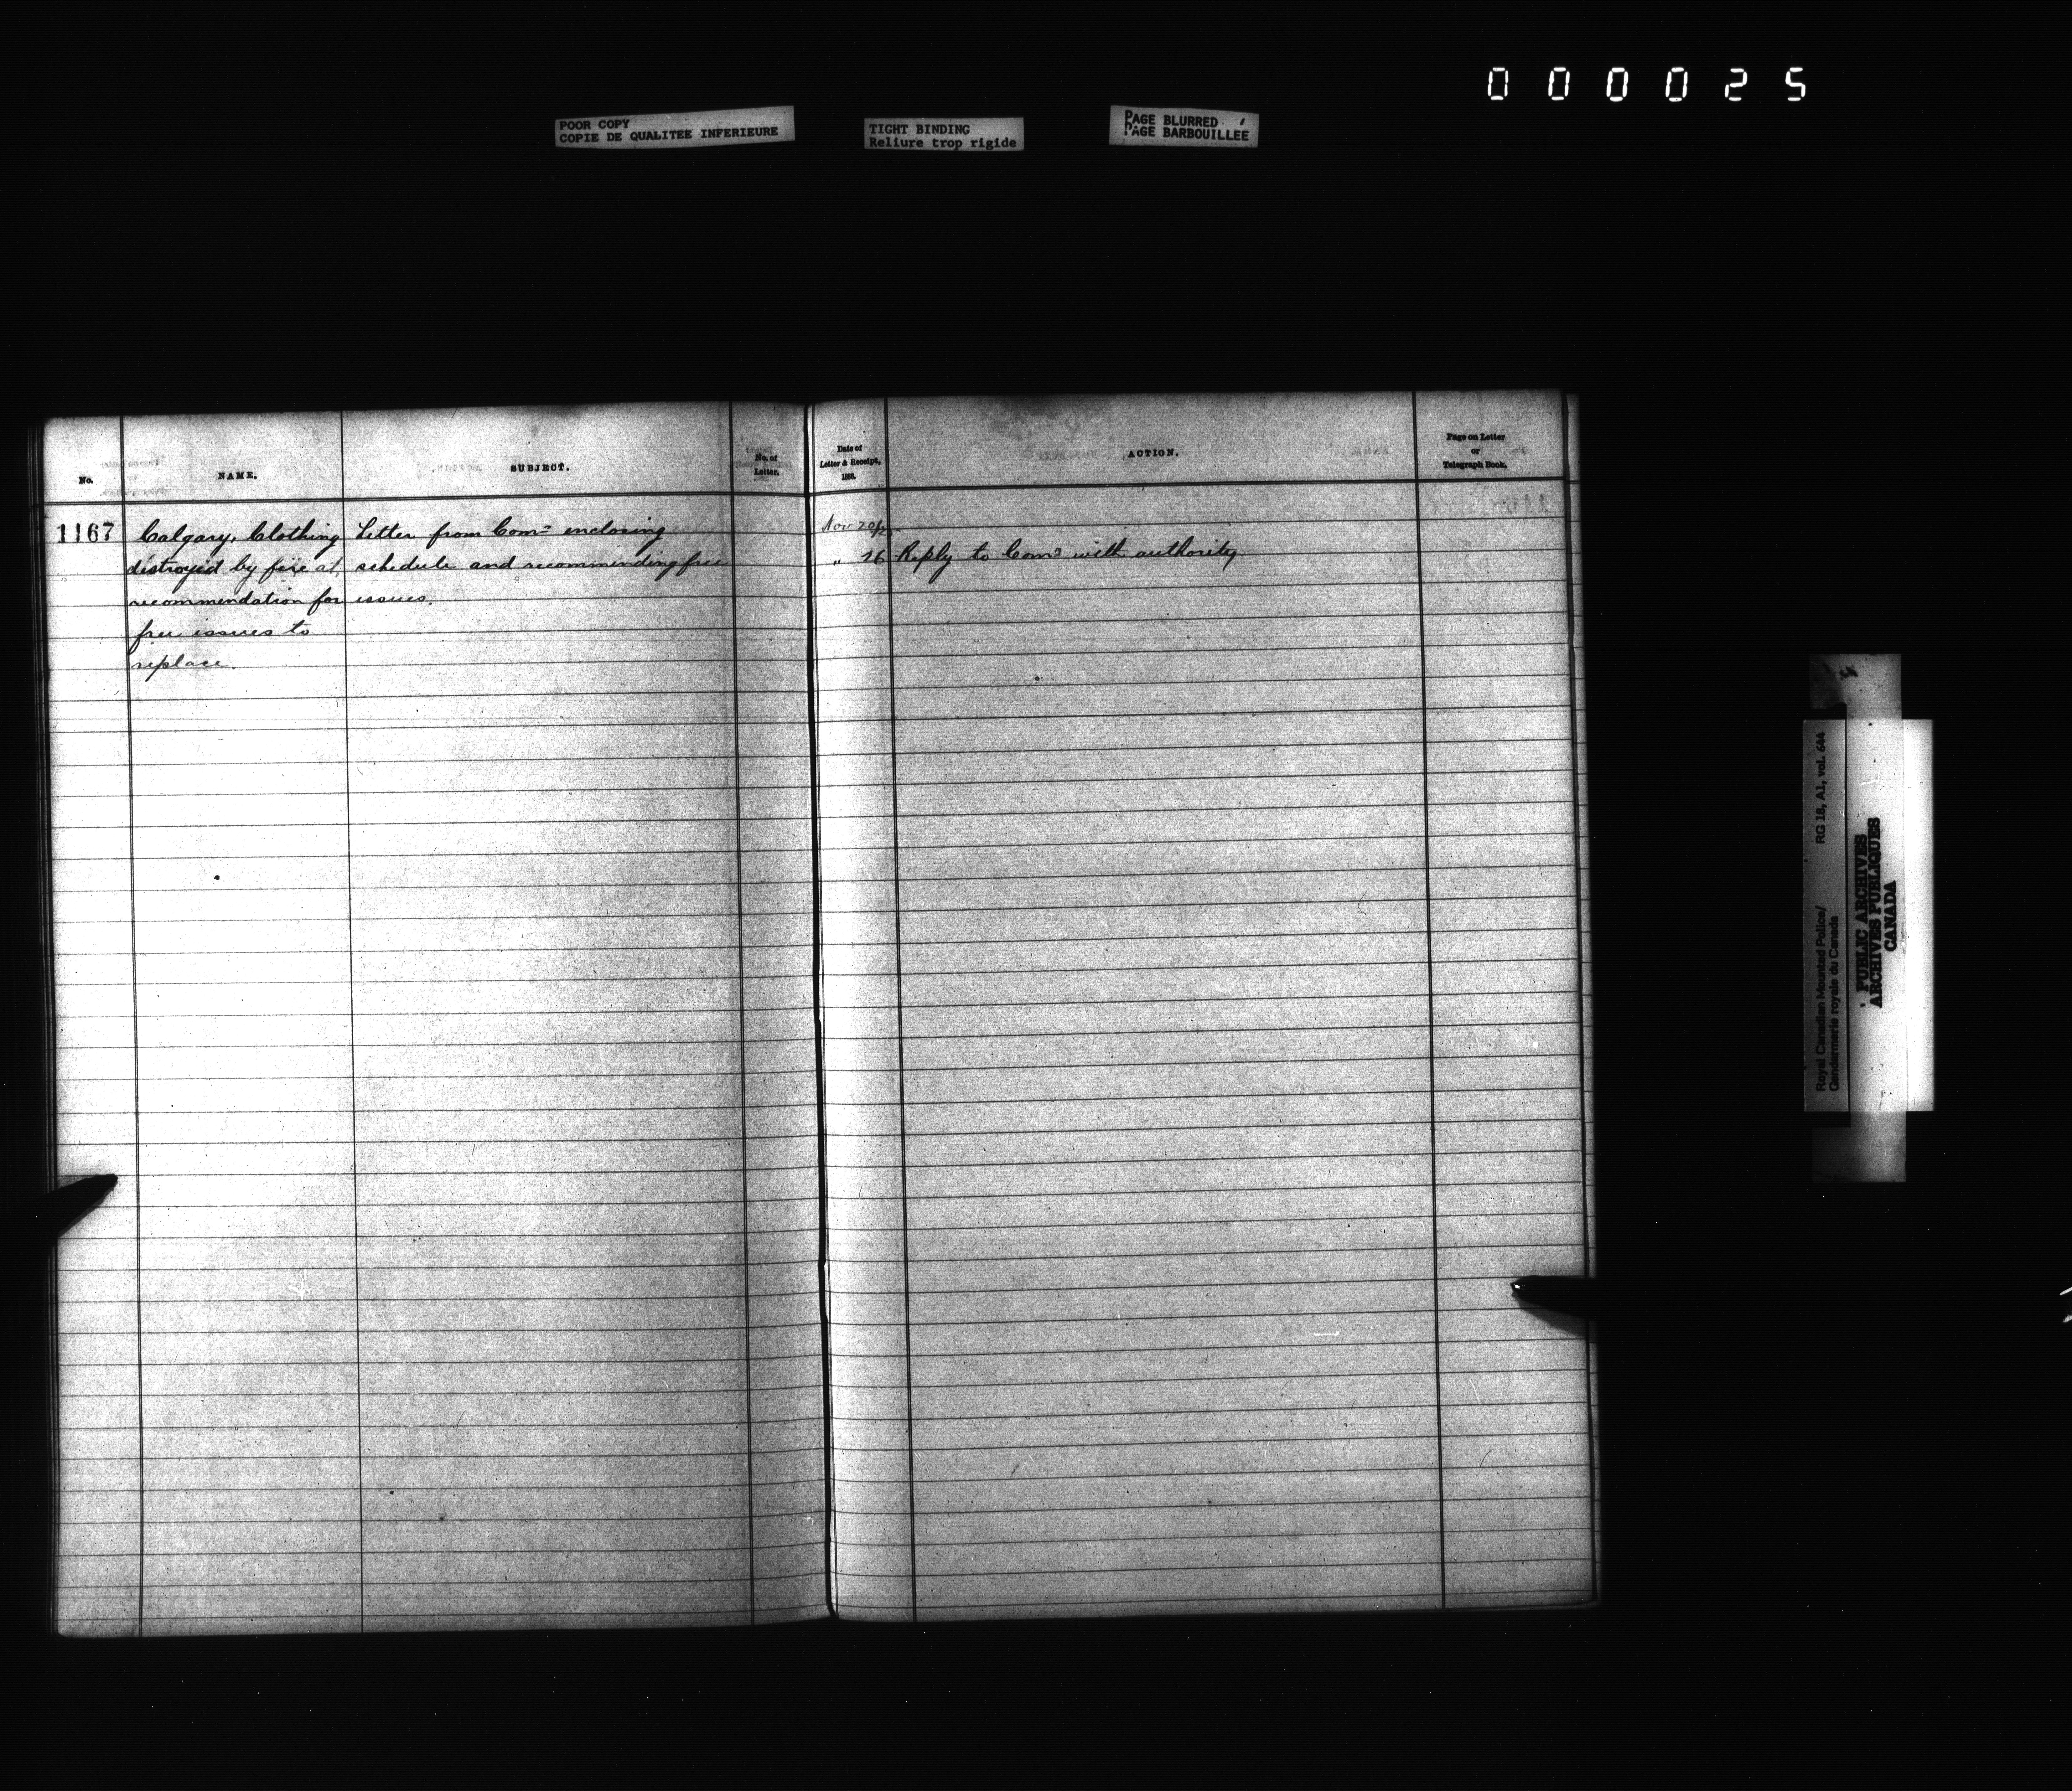 000025
POOR COPY
COPIE DE QUALITEE INFERIEURE
TIGHT BINDING
Reliure trop rigide
PAGE BLURRED
PAGE BARBOUILLEE
No.
NAME.
SUBJECT.
No. of
Letter.
Date of
Letter & Receipt,
ACTION.
Page on Letter
or
Telegraph Book.
1167
Calgary, Clothing
distroyed by fire at,
recommendation for
free issues to
replace.
Letter from Comr enclosing
schedule and recommending free
issues.
Nov 20
" 26 Reply to Comr with authority
Royal Canadian Mounted Police/ RG 18, A1, vol. 644
Gendarmerie royale du Canada
PUBLIC ARCHIVES
ARCHIVES PUBLIQUES
CANADA